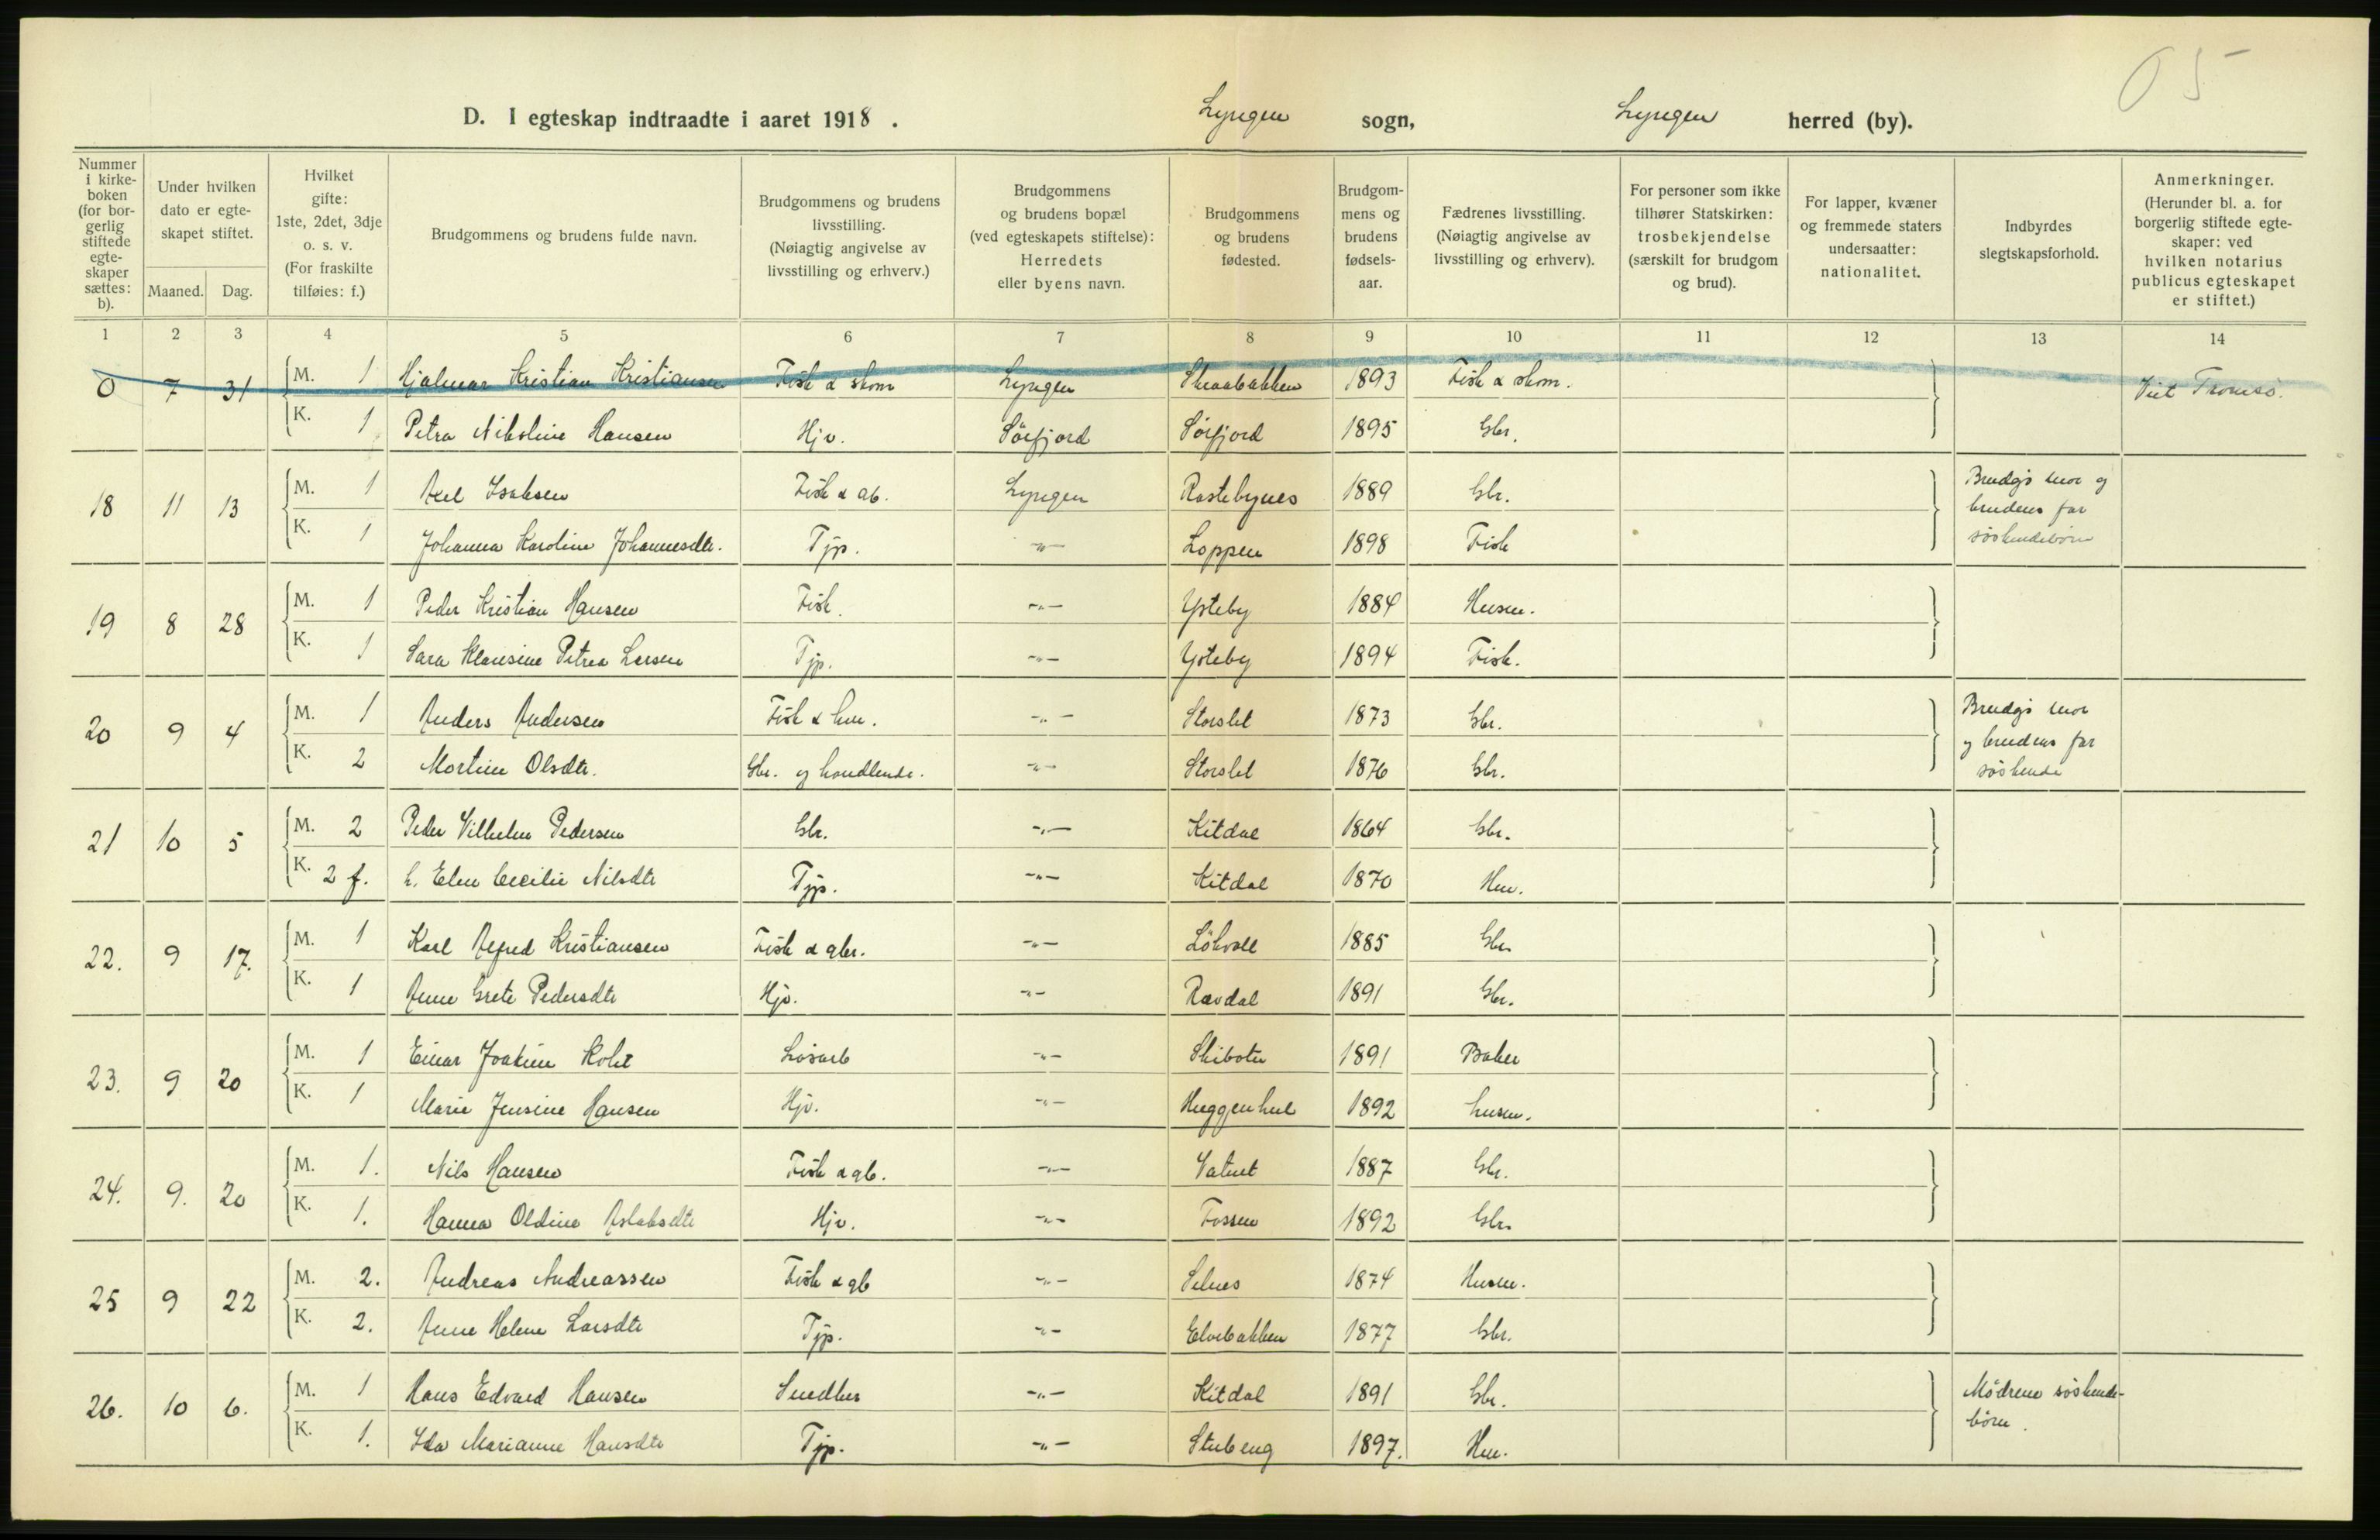 05
D. I egteskap indtraadte i aaret 1918. Lyngen sogn, Lyngen herred (by).
Nummer i kirkeboken (for borgerlig stiftede egteskaper sættes: b).
Under hvilken dato er egteskapet stiftet.
Maaned. Dag.
Hvilket gifte: 1ste, 2det, 3dje o. s. v. (For fraskilte tilføies: f.)
Brudgommens og brudens fulde navn.
Brudgommens og brudens livsstilling. (Nøiagtig angivelse av livsstilling og erhverv.)
Brudgommens og brudens bopæl (ved egteskapets stiftelse): Herredets eller byens navn.
Brudgommens og brudens fødested.
Brudgommens og brudens fødselsaar.
Fædrenes livsstilling. (Nøiagtig angivelse av livsstilling og erhverv).
For personer som ikke tilhører Statskirken: trosbekjendelse (særskilt for brudgom og brud).
For lapper, kvæner og fremmede staters undersaatter: nationalitet.
Indbyrdes slegtskapsforhold.
Anmerkninger. (Herunder bl. a. for borgerlig stiftede egteskaper: ved hvilken notarius publicus egteskapet er stiftet.)
1 2 3 4 5 6 7 8 9 10 11 12 13 14
0 7 31 M. 1 Hjalmar Kristian Kristiansen Fisk & skom Lyngen 1893 Fisk & skom. Viet Tromsö.
K. 1 Petra Nikoline Hansen Hjv. Sörfjord Sörfjord 1895 Gbr.
18 11 13 M. 1 Axel Isaksen Fisk & gb. Lyngen Rastebynes 1889 Gbr. Brudgs mor og
K. 1 Johanna Karoline Johannesdtr. Tjp. -"- Loppen 1898 Fisk brudens far
söskendebörn
19 8 28 M. 1 Peder Kristian Hansen Fisk. -"- Ysteby 1884 Husm.
K. 1 Sara Klausine Petrea Larsen Tjp. -"- Ysteby 1894 Fisk.
20 9 4 M. 1 Anders Andersen Fisk & hm. -"- Storslet 1873 Gbr. Brudgs mor
K. 2 Martine Olsdtr. Gbr. og handlende. -"- Storslet 1876 Gbr. og brudens far
söskende
21 10 5 M. 2 Peder Vilhelm Pedersen Gbr. -"- Kitdal 1864 Gbr.
K. 2 f. h. Elen Cecilie Nilsdtr Tjp. -"- Kitdal 1870 Hm.
22. 9 17. M. 1 Karl Alfred Kristiansen Fisk & gbr. -"- Lökvoll 1885 Gbr
K. 1 Anne Grete Pedersdtr Hjv. -"- Ravdal 1891 Gbr.
23. 9 20 M. 1 Einar Joakim Koht Lösarb -"- Skibotn 1891 Baker
K. 1 Marie Jensine Hansen Hjv. -"- 1892 husm.
24. 9. 20 M. 1. Nils Hansen Fisk & gb. -"- Vatnet 1887 Gbr.
K. 1. Hanna Oldine Aslaksdtr Hjv. -"- Fossen 1892 Gbr
25 9 22 M. 2. Andreas Andreassen Fisk & gb -"- Selnes 1874 Husm.
K. 2. Anne Helene Larsdtr Tjp. -"- Elvebakken 1877 Gbr.
26. 10 6. M. 1 Hans Edvard Hansen Snedker -"- Kitdal 1891 Gbr. Mödrene söskende-
K. 1. Ida Marianne Hansdtr Tjp. -"- Stubeng 1897. Hm. börn.